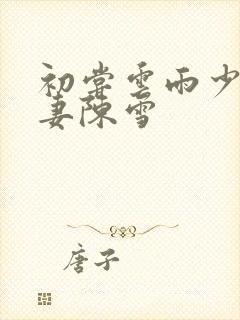 初尝云雨少
妻陈雪
唐子